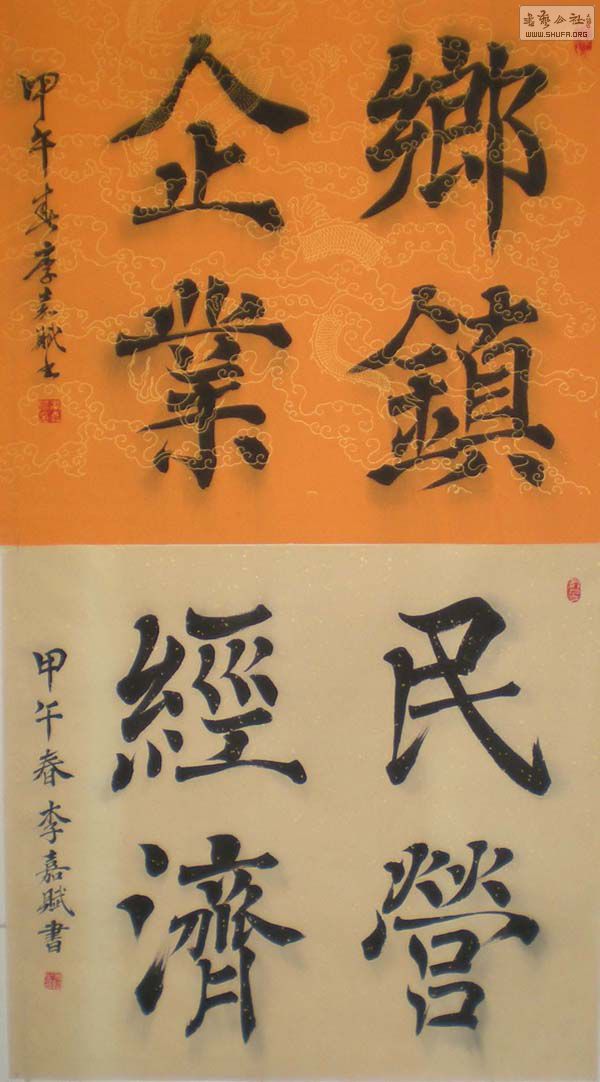 書藝公社
WWW.SHUFA.ORG
鄉鎮
企業
甲午春李嘉賦書
民營
經濟
甲午春李嘉賦書